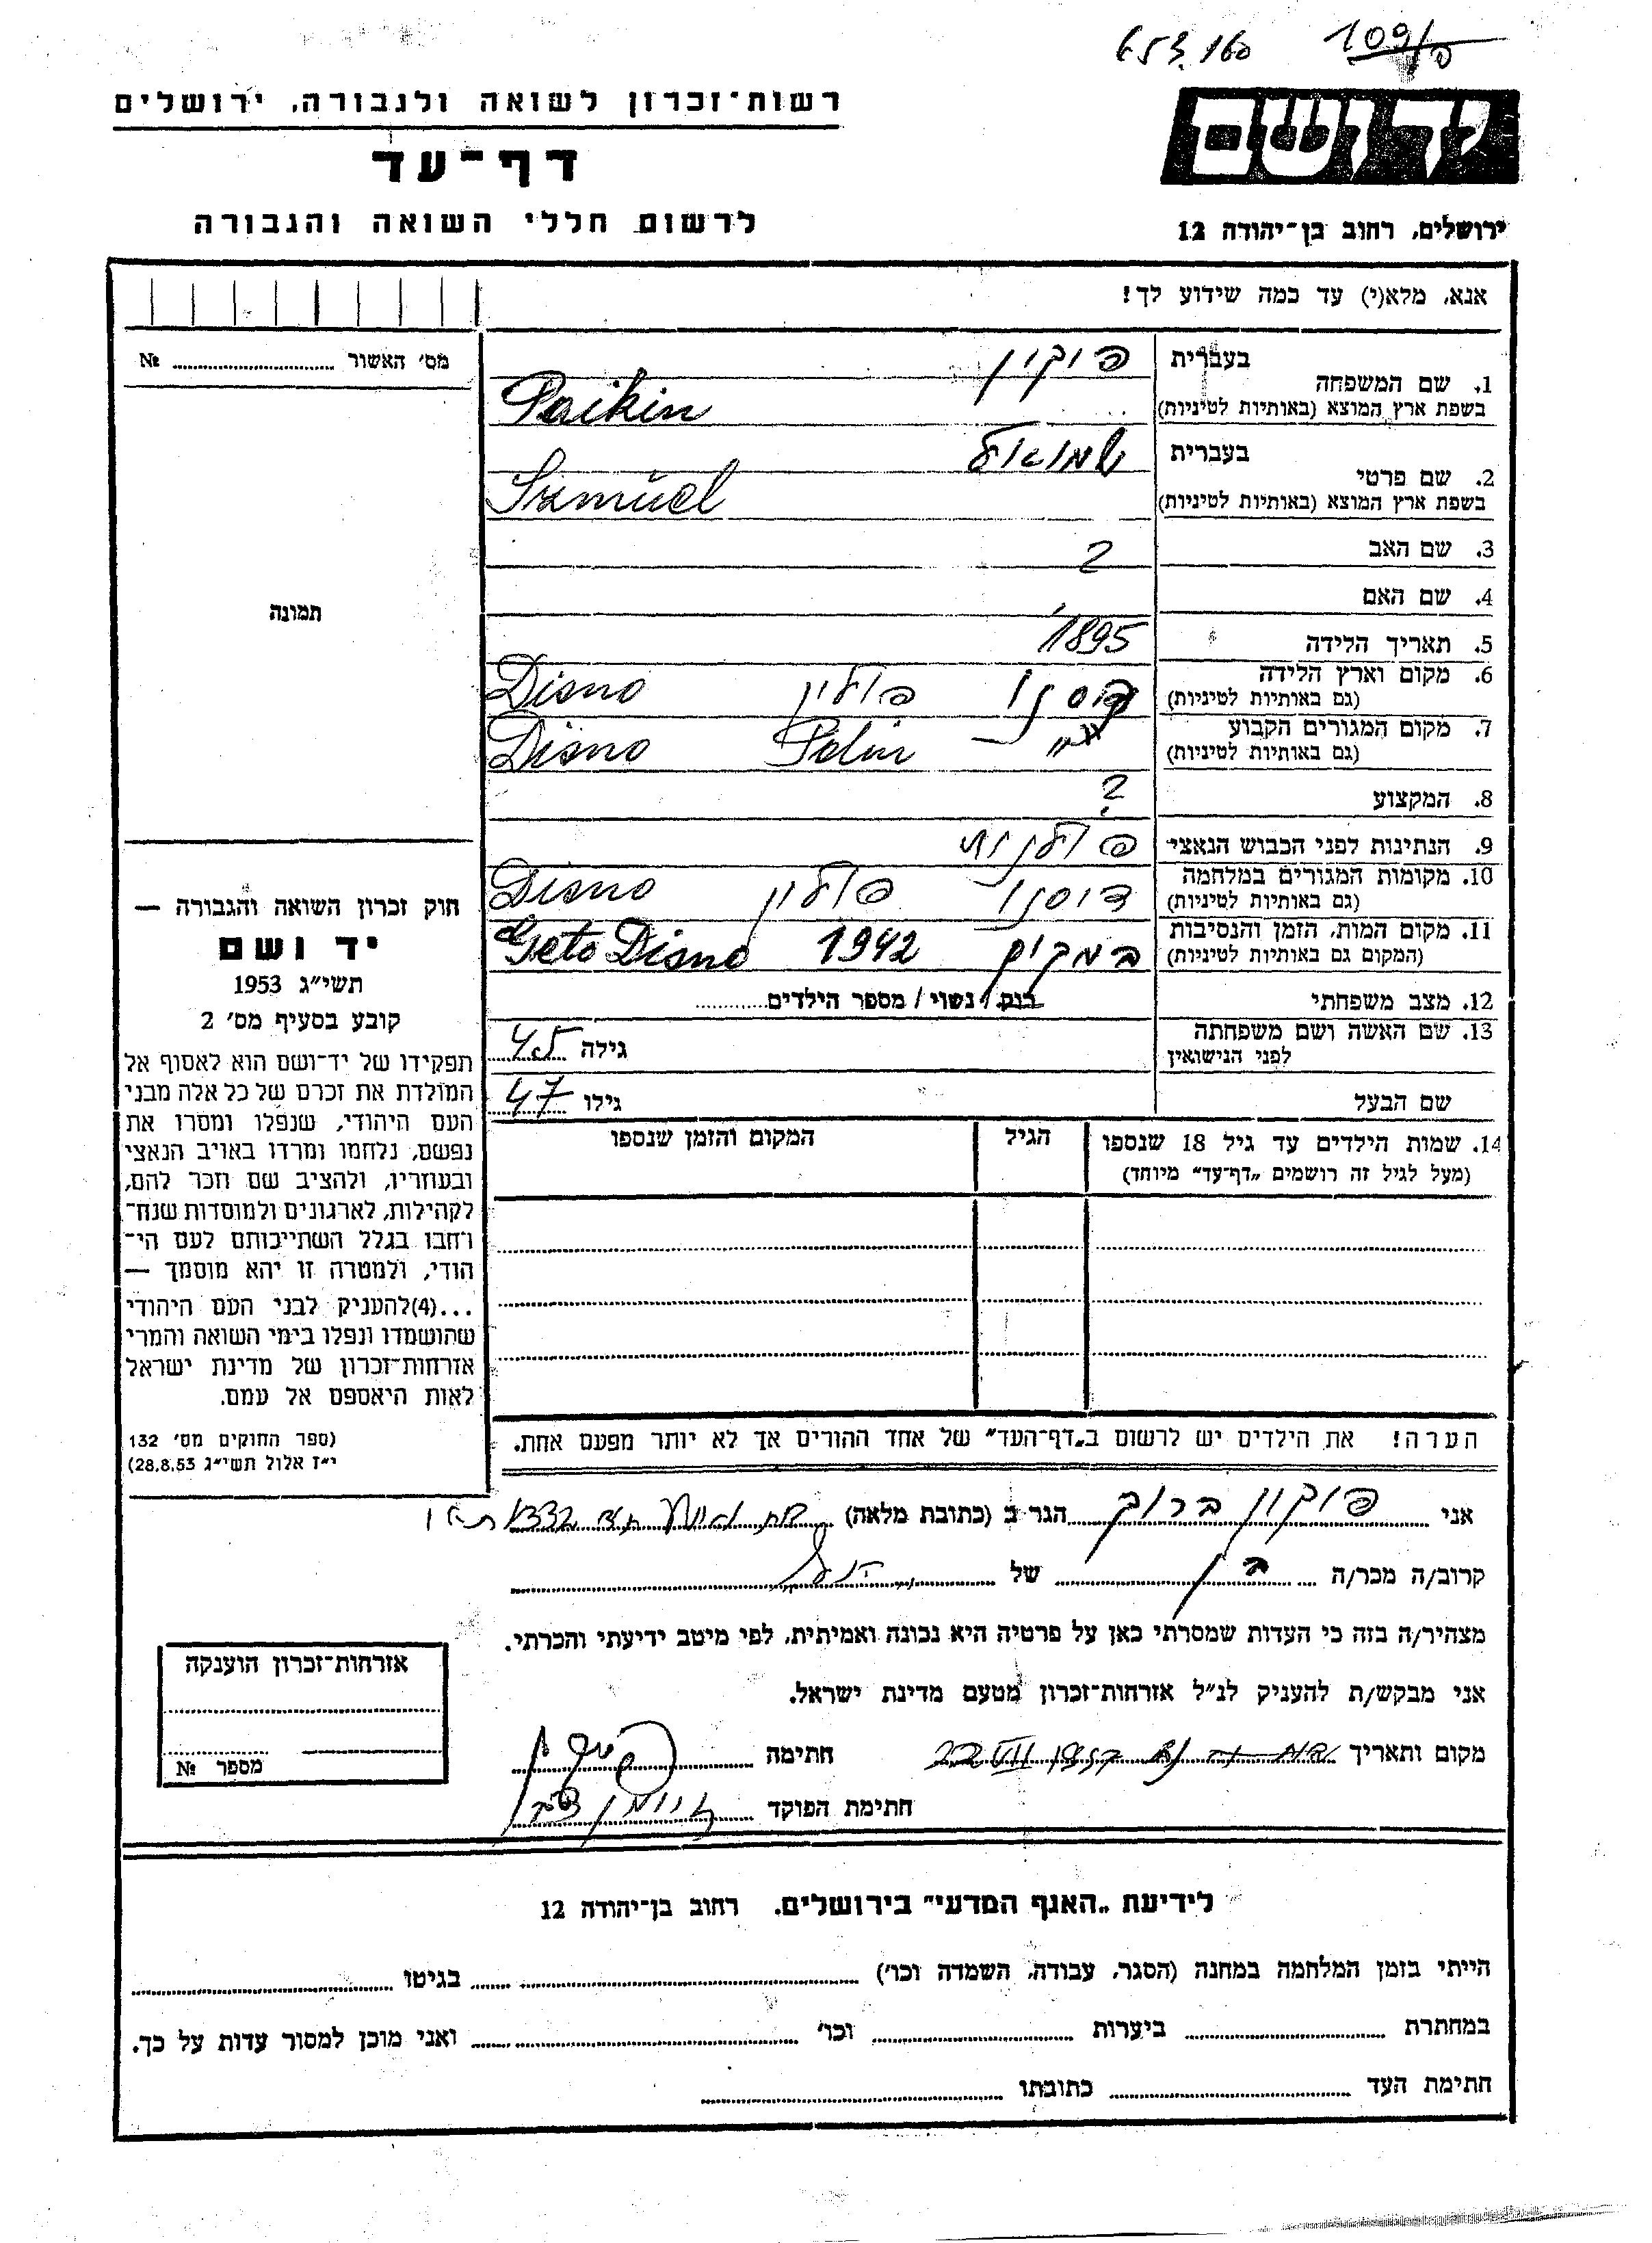 653.160 109/פ
רשות־זכרון לשואה ולגבורה, ירושלים
דף־עד
לרשום חללי השואה והגבורה
יד ושם
ירושלים, רחוב בן־יהודה 12
אנא, מלא(י) עד כמה שידוע לך!
מס׳ האשור ........ №
תמונה
1. שם המשפחה בעברית פיקין
בשפת ארץ המוצא (באותיות לטיניות) Paikin
2. שם פרטי בעברית שמואל
בשפת ארץ המוצא (באותיות לטיניות) Szmuel
3. שם האב ?
4. שם האם
5. תאריך הלידה 1895
6. מקום וארץ הלידה (גם באותיות לטיניות) דיסנו פולין Disno
7. מקום המגורים הקבוע (גם באותיות לטיניות) " Polin Disno
8. המקצוע ?
9. הנתינות לפני הכבוש הנאצי פולנית
10. מקומות המגורים במלחמה (גם באותיות לטיניות) דיסנו פולין Disno
11. מקום המות, הזמן והנסיבות (המקום גם באותיות לטיניות) במקום 1942 Geto Disno
12. מצב משפחתי רוק / נשוי / מספר הילדים........
13. שם האשה ושם משפחתה לפני הנישואין גילה 45
שם הבעל גילו 47
14. שמות הילדים עד גיל 18 שנספו
(מעל לגיל זה רושמים „דף־עד״ מיוחד)
הגיל
המקום והזמן שנספו
הערה! את הילדים יש לרשום ב„דף־העד״ של אחד ההורים אך לא יותר מפעם אחת.
חוק זכרון השואה והגבורה —
יד ושם
תשי״ג 1953
קובע בסעיף מס׳ 2
תפקידו של יד־ושם הוא לאסוף אל
המולדת את זכרם של כל אלה מבני
העם היהודי, שנפלו ומסרו את
נפשם, נלחמו ומרדו באויב הנאצי
ובעוזריו, ולהציב שם וזכר להם,
לקהילות, לארגונים ולמוסדות שנח־
רחבו בגלל השתייכותם לעם הי־
הודי, ולמטרה זו יהא מוסמך —
...(4)להעניק לבני העם היהודי
שהושמדו ונפלו בימי השואה והמרי
אזרחות־זכרון של מדינת ישראל
לאות היאספם אל עמם.
(ספר החוקים מס׳ 132
י״ז אלול תשי״ג 28.8.53)
אני פיקין ברוך הגר ב (כתובת מלאה)
קרוב/ה מכר/ה בן של הנ״ל
מצהיר/ה בזה כי העדות שמסרתי כאן על פרטיה היא נכונה ואמיתית, לפי מיטב ידיעתי והכרתי.
אני מבקש/ת להעניק לנ״ל אזרחות־זכרון מטעם מדינת ישראל.
מקום ותאריך חתימה
חתימת הפוקד
אזרחות־זכרון הוענקה
מספר №
לידיעת „האגף המדעי״ בירושלים. רחוב בן־יהודה 12
הייתי בזמן המלחמה במחנה (הסגר, עבודה, השמדה וכו׳) ........ בגיטו ........
במחתרת ........ ביערות ........ וכו׳ ........ ואני מוכן למסור עדות על כך.
חתימת העד ........ כתובתו ........